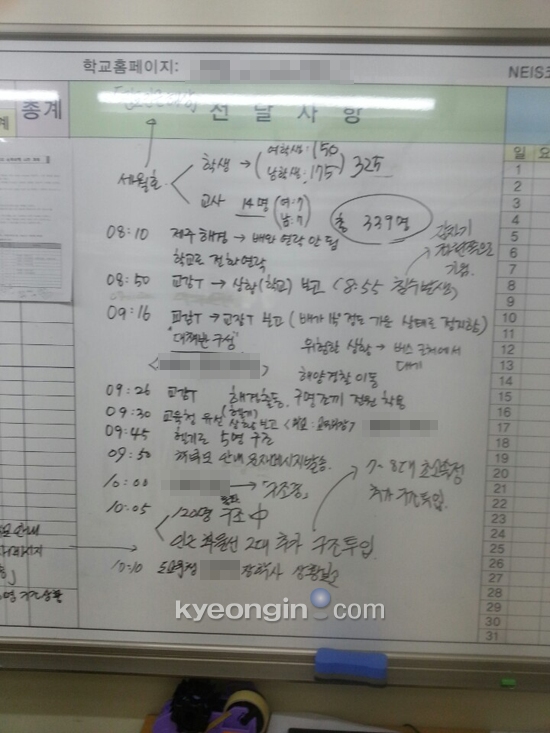 학교홈페이지:
NEIS
총계
전달사항
일
세월호
학생 → 여학생: 150
남학생: 175
325
교사 14명 (여:7
남:7)
총 339명
갑자기
기움.
08:10 제주해경 → 배와 연락 안 됨
학교로 전화연락
08:50 교감T → 상황(학교) 보고 (8:55 침수발생)
09:16 교감T 보고 (배가 15° 정도 기운 상태로 정지함)
"대책반 구성"
위험한 상황 → 버스 근처에서
대기
해양경찰 이동
09:26 교감T 해경출동, 구명조끼 전원 착용
09:30 교육청 유선 상황보고
09:45 헬기로 5명 구조
09:50 안내 문자메시지발송.
10:00 → "구조중"
7~8대
추가 구조투입.
10:05 120명 구조中
인근 화물선 2대 추가 구조투입.
10:10 도교육청 장학사 상황보고
안내
1
2
3
4
5
6
7
8
9
10
11
12
13
14
15
16
17
18
19
20
21
22
23
24
25
26
27
28
29
30
31
kyeongin.com